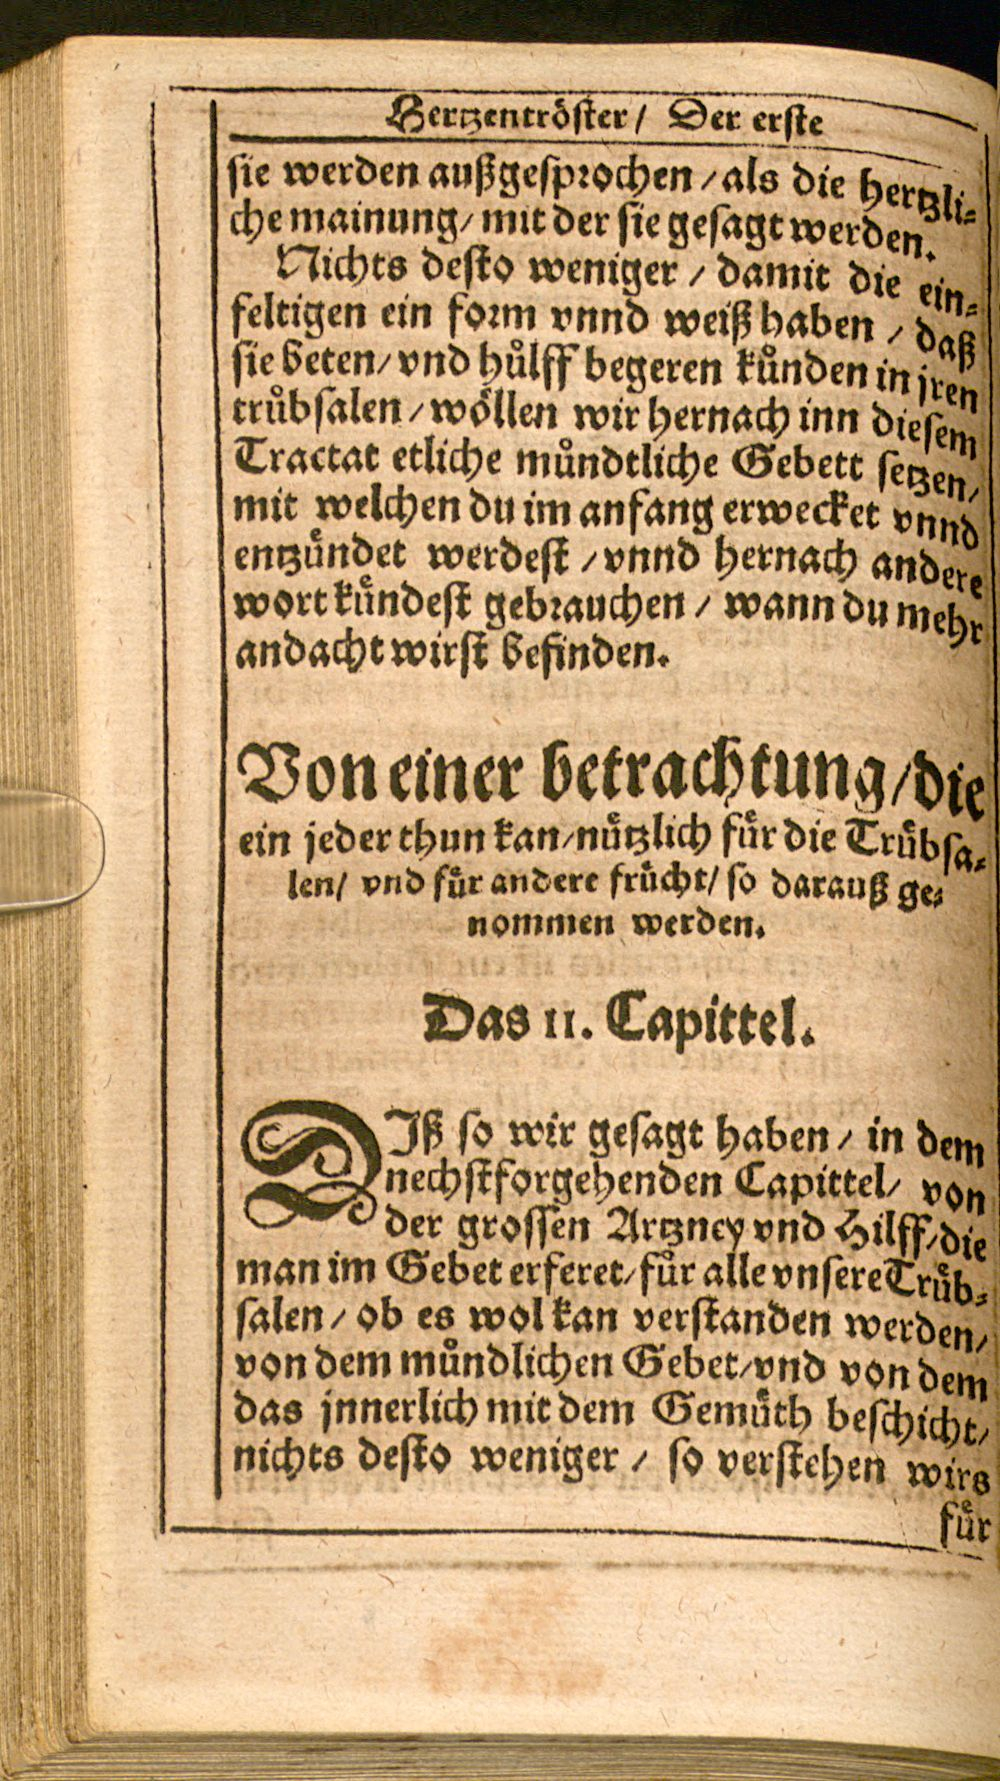 Hertzentröster/ Der erste
sie werden außgesprochen/als die hertzli⸗
che mainung/mit der sie gesagt werden.
Nichts desto weniger/damit die ein⸗
feltigen ein form vnnd weiß haben/daß
sie beten/vnd huͤlff begeren kuͤnden in jren
truͤbsalen/woͤllen wir hernach inn diesem
Tractat etliche muͤndtliche Gebett setzen/
mit welchen du im anfang erwecket vnnd
entzuͤndet werdest/vnnd hernach andere
wort kuͤndest gebrauchen/wann du mehr
andacht wirst befinden.
Von einer betrachtung/die
ein jeder thun kan/nuͤtzlich fuͤr die Truͤbsa⸗
len/ vnd fuͤr andere fruͤcht/ so darauß ge⸗
nommen werden.
Das 11. Capittel.
DIß so wir gesagt haben/in dem
nechstforgehenden Capittel/ von
der grossen Artzney vnd Hilff/die
man im Gebet erferet/fuͤr alle vnsere Truͤb⸗
salen/ob es wol kan verstanden werden/
von dem muͤndlichen Gebet/vnd von dem
das jnnerlich mit dem Gemuͤth beschicht/
nichts desto weniger/so verstehen wirs
fuͤr